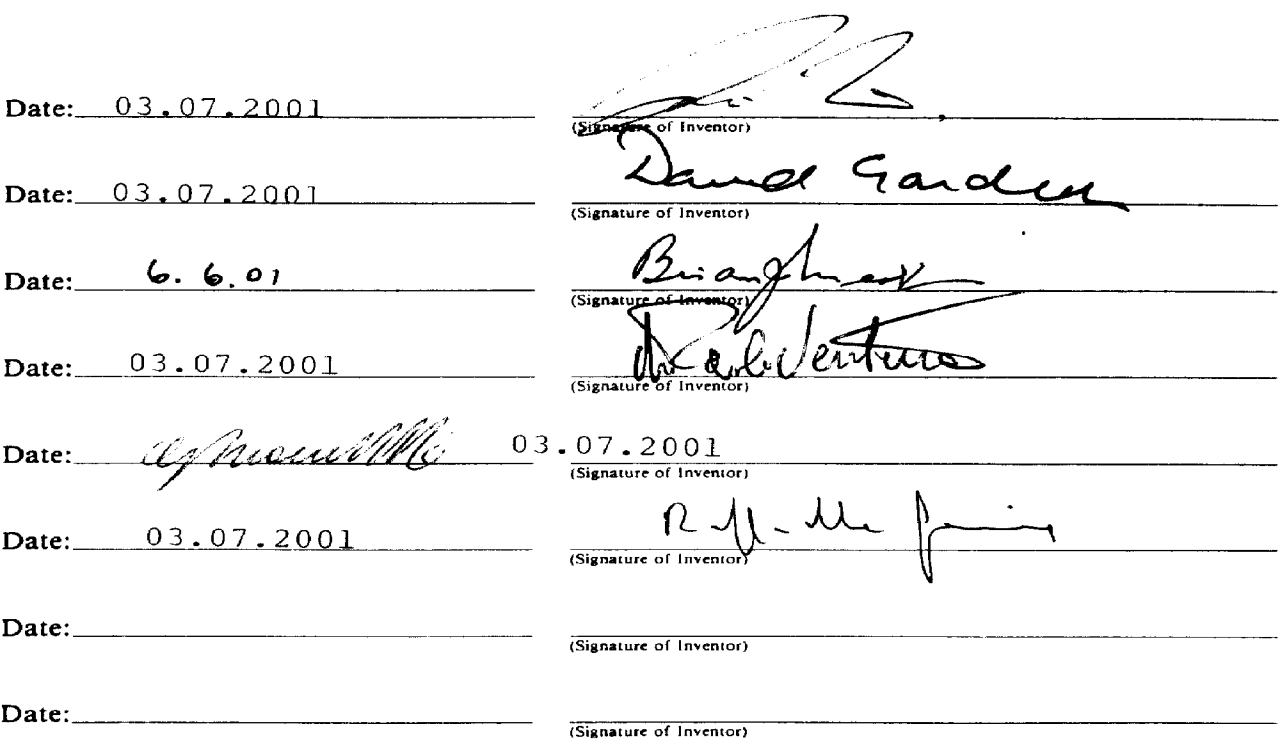 Date: 03.07.2001
(Signature of Inventor)
Date: 03.07.2001 David Gardner
(Signature of Inventor)
Date: 6.6.01 Brian
(Signature of Inventor)
Date: 03.07.2001 Paolo Ventura
(Signature of Inventor)
Date: 03.07.2001
(Signature of Inventor)
Date: 03.07.2001
(Signature of Inventor)
Date:
(Signature of Inventor)
Date:
(Signature of Inventor)